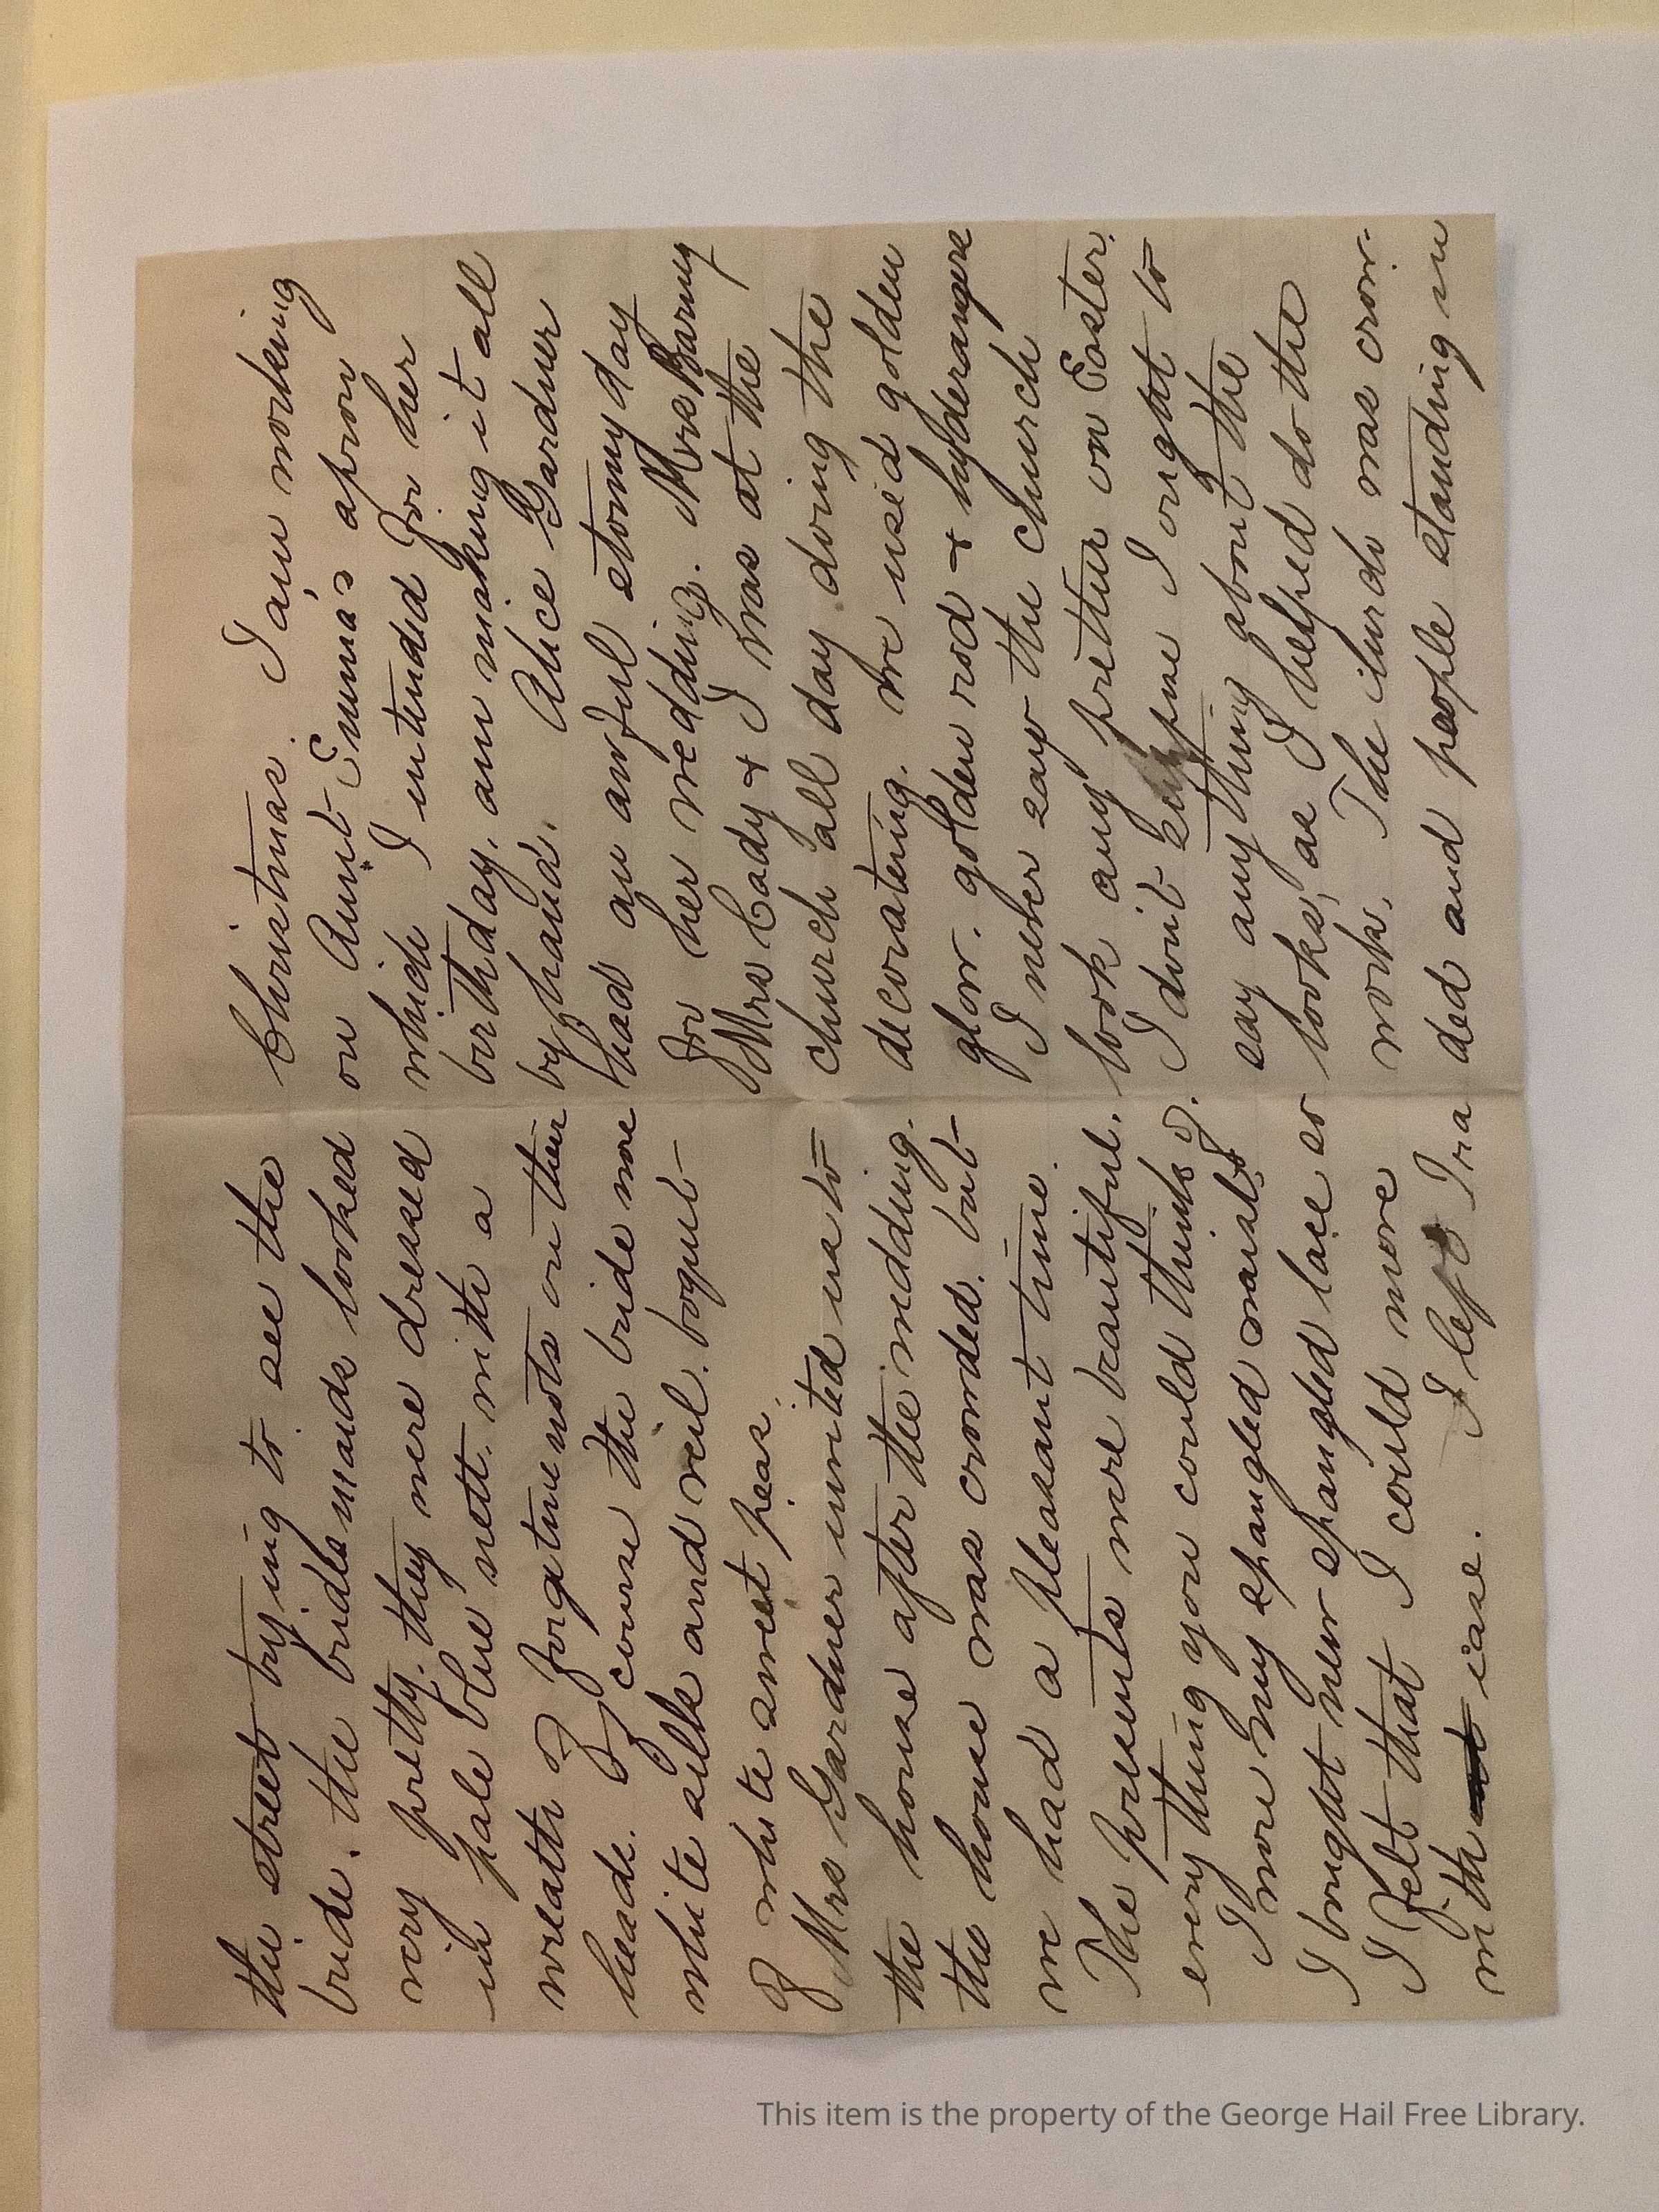 Christmas. I am working
on Aunt Emma's apron
which I intended for her
birthday, am making it all
by hand. Alice Gardner
had an awful stormy day
for her wedding. Mrs Barney
Mrs Cady & I was at the
church all day doing the
decorating. we used golden
glow. golden rod & hyderangere
I never saw the church
look any prettier on Easter.
I don't suppose I ought to
say anything about the
looks, as I helped do the
work. The church was crow-
ded and people standing in
the street trying to see the
bride. the bridesmaids looked
very pretty. they were dressed
in pale blue nett. with a
wreath of forgetmenots on their
heads. Of course the bride wore
white silk and veil. boquet
of white sweet peas.
Mrs Gardner invited us to
the house after the wedding.
the house was crowded. but
we had a pleasant time.
The presents were beautiful.
every thing you could think of.
I wore my spangled waist,
I bought new spangled lace so
I felt that I could move
with ease. I left Ira
This item is the property of the George Hail Free Library.